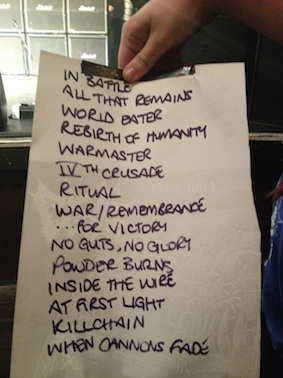 IN BATTLE
ALL THAT REMAINS
WORLD EATER
REBIRTH OF HUMANITY
WARMASTER
IVTH CRUSADE
RITUAL
WAR/REMEMBRANCE
...FOR VICTORY
NO GUTS, NO GLORY
POWDER BURNS
INSIDE THE WIRE
AT FIRST LIGHT
KILLCHAIN
WHEN CANNONS FADE